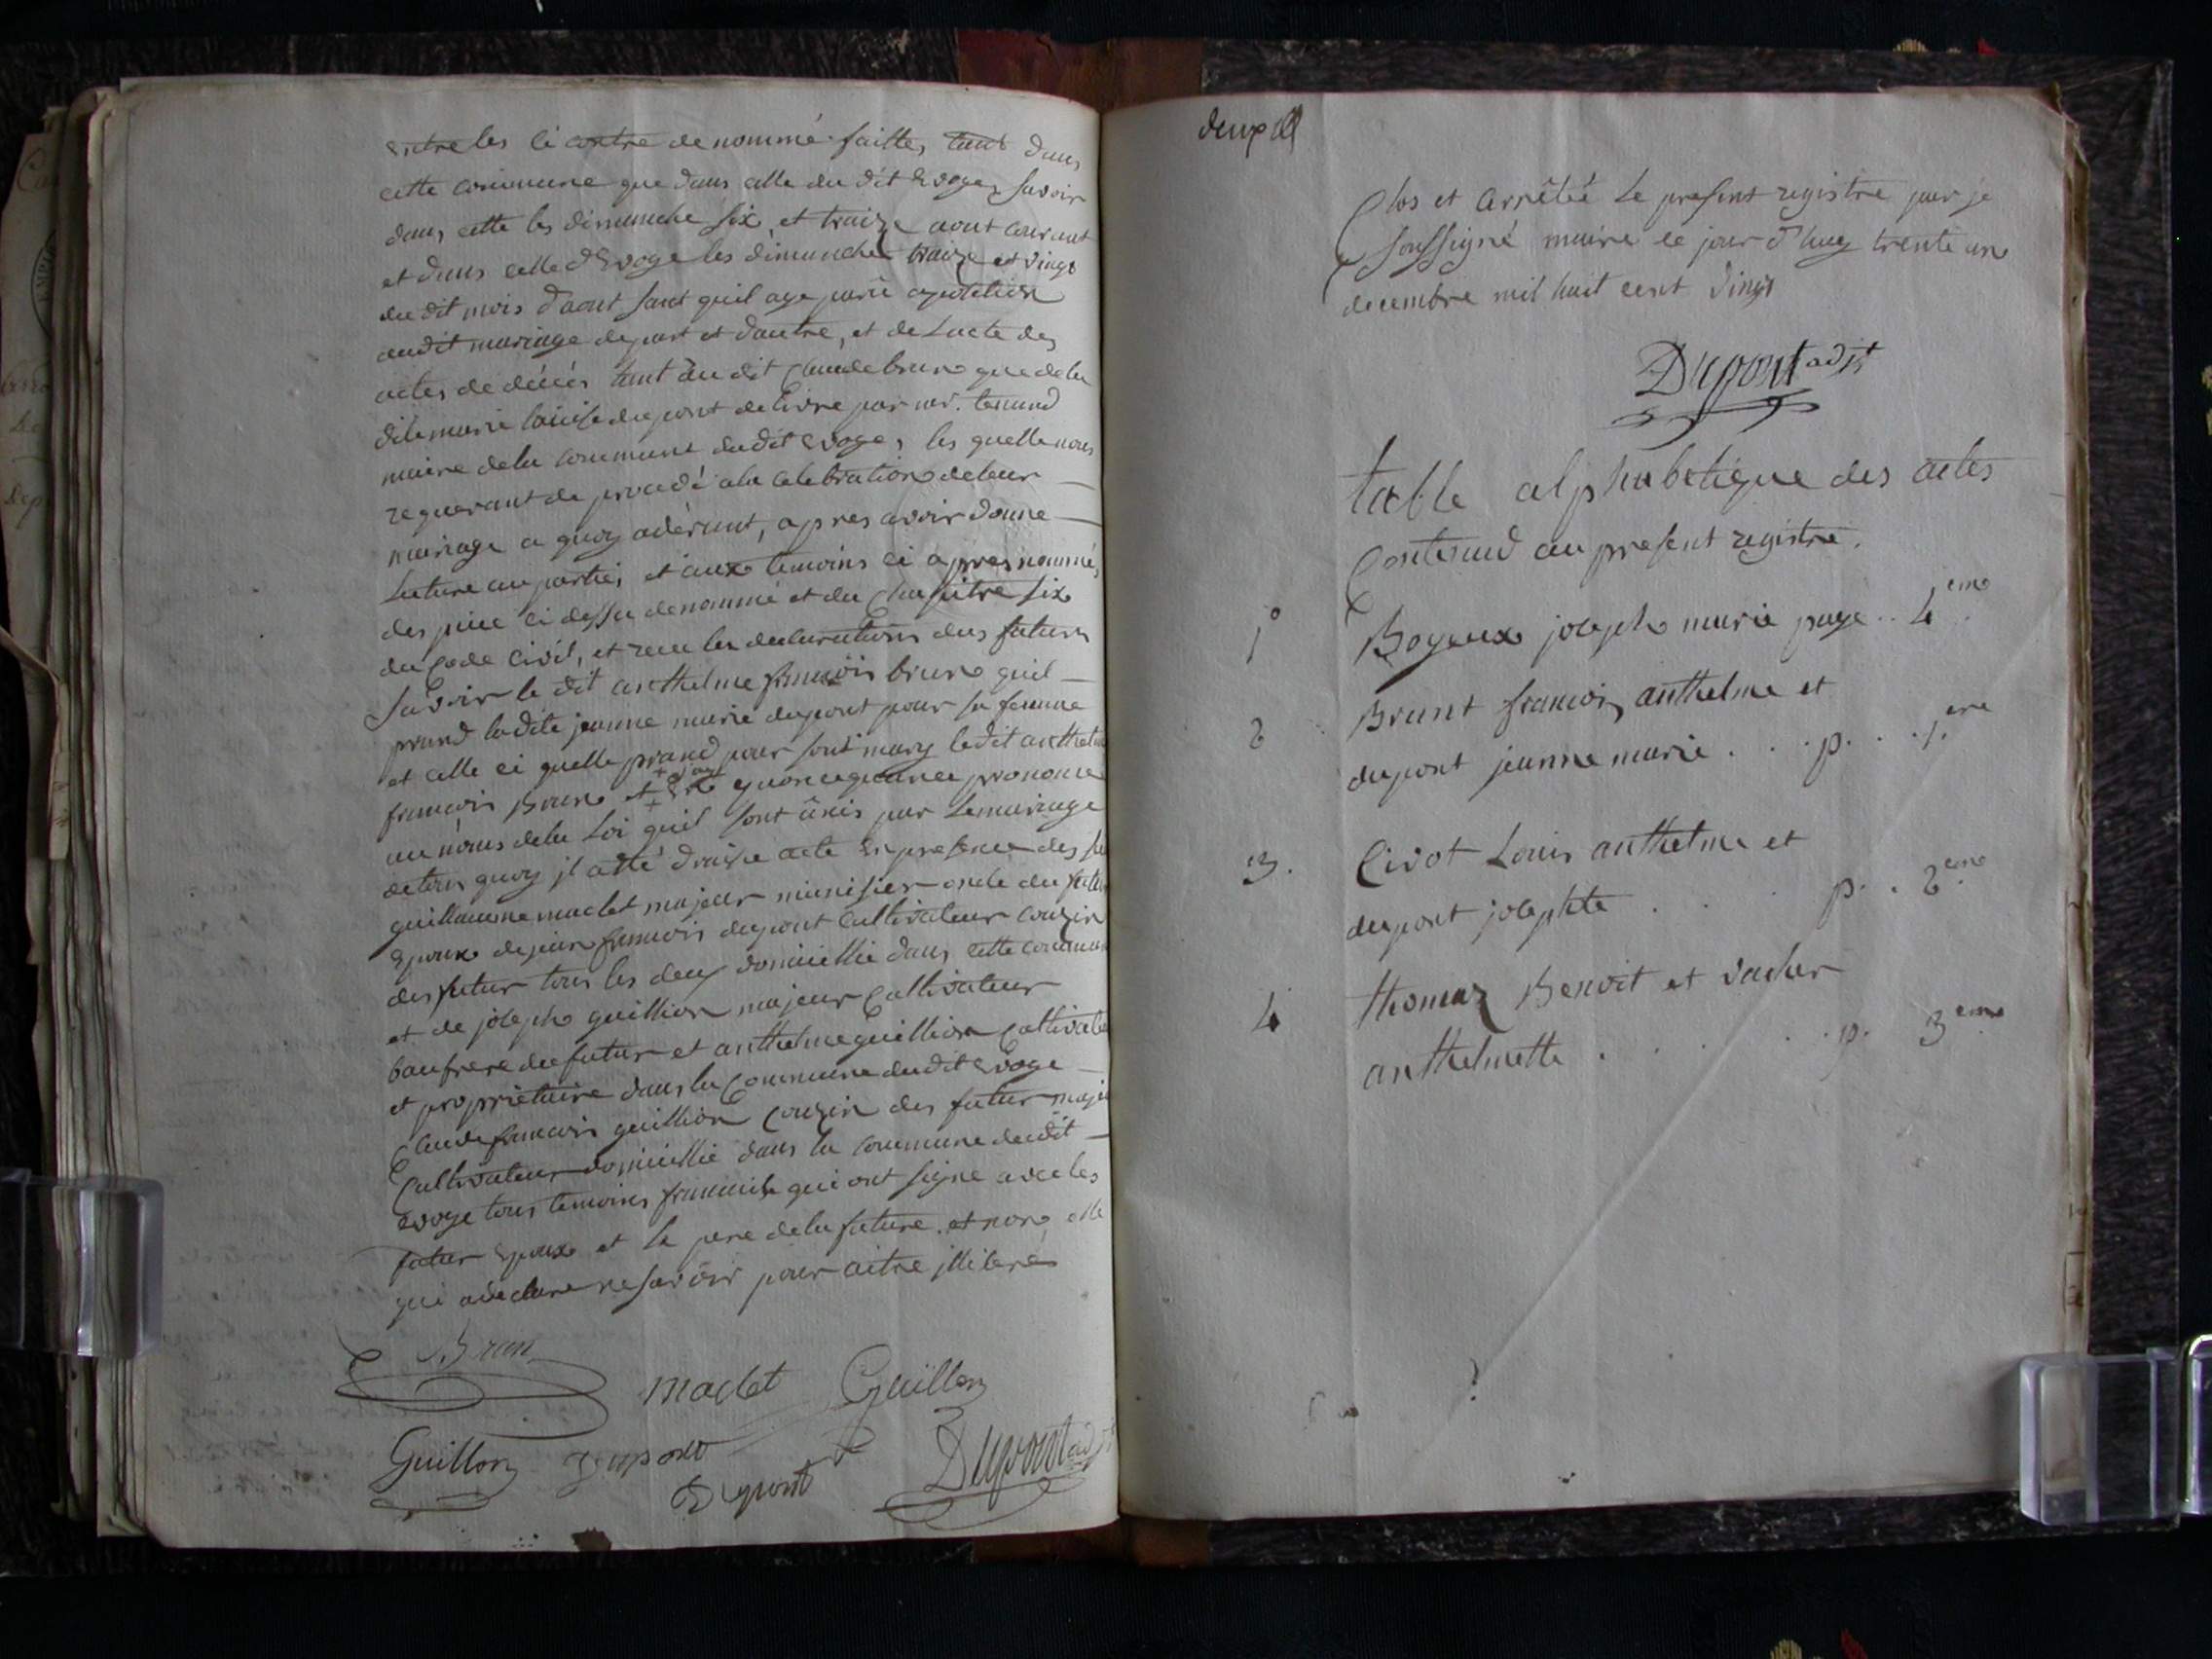 entre les ci contre denommé faittes tant dans
cette commune que dans celle du dit Evoges savoir
dans cette les dimanche six, et traize aout courant
et dans celle d'Evoge les dimanche traize et vingt
du dit mois d'aout sant quil aye parû opotition
audit mariage de part et dautre, et de Lacte des
actes de décés tant du dit Claude brun que de la
dite marie louise dupont delivré par mr. tenand
maire de la commune dudit Evoges, les quelle nous
requerant de procedé a la celebration de leur
mariage a quoy adérant, apres avoir donne
Lecture au parties et aux temoins ci apres nommés
des piece ci dessu denommé et du Chapitre six
du Code Civil, et recu les declarations des futurs
Savoir le dit anthelme francois brun quil
prand ladite jeanne marie dupont pour sa femme
et celle ci quelle prand pour sont mary ledit anthelme
francois Brun et
au nom de la Loi quil sont ûnis par Le mariage
de tous quoy il a été draisse acte en presence des
guillaume maclet majeur oncle du futur
Epoux de jean francois dupont Cultivateur couzin
des futur tous les deux domicillié dans cette commune
et de joseph guillion majeur Cultivateur
baufrere du futur et anthelme guillion Cultivateur
et proprietaire dans la Commune dudit Evoge
Claude francois guillion Couzin des futur majeur
Cultivateur domicillié dans la commune dudit
Evoge tous temoins francais qui ont signe avec les
futur Epoux et le pere de la future. et non elle
qui a declare ne savoir pour aitre illiteré
Brun
maclet Guillon
Guillon Dupont
Dupont Dupont adjt
deux
Clos et arrêtéé le present registre par je
soussigné maire ce jour d'huy trente un
decembre mil huit cent vingt
Dupont adjt
table alphabetique des actes
Contenud au present registre.
1° Boyeux joseph marie page .. 4eme
2 Brunt francois anthelme et
dupont jeanne marie . . . p. . . 1.ere
3. Civot Louis anthelme et
dupont josephte . . . p. . 2eme
4 thomaz Benoit et vacher
anthelmette . . . . p. 3eme